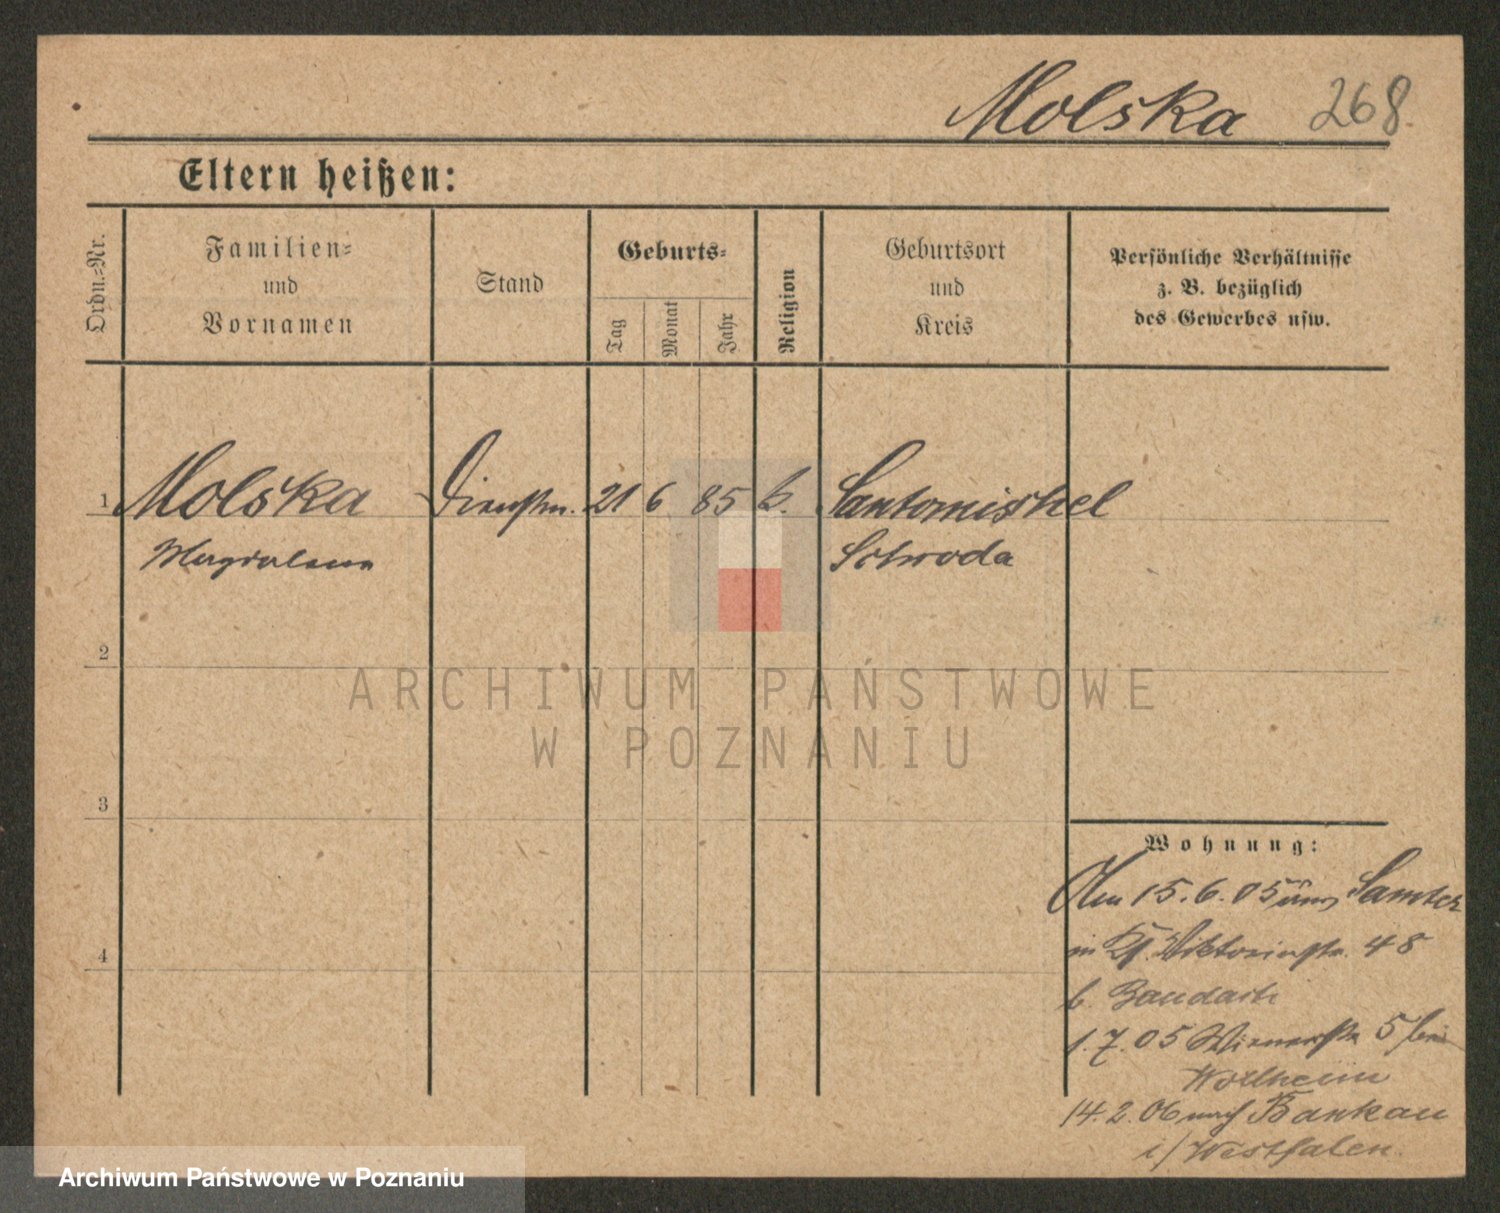 Molska 268
Eltern heißen:
Ordn.-Nr.
Familien-
und
Vornamen
Stand
Geburts-
Tag
Monat
Jahr
Religion
Geburtsort
und
Kreis
Persönliche Verhältnisse
z. B. bezüglich
des Gewerbes usw.
1 Molska Dienstm. 21 6 85 k. Santomischel
Magdalena Schroda
2
ARCHIWUM PAŃSTWOWE
W POZNANIU
3
Wohnung:
Am 15.6.05 aus Samter
in Viktoriastr. 48
b.
4
1.7.05 Wienerstr. 5 bei
14.2.06 nach Bankau
i/Westfalen.
Archiwum Państwowe w Poznaniu